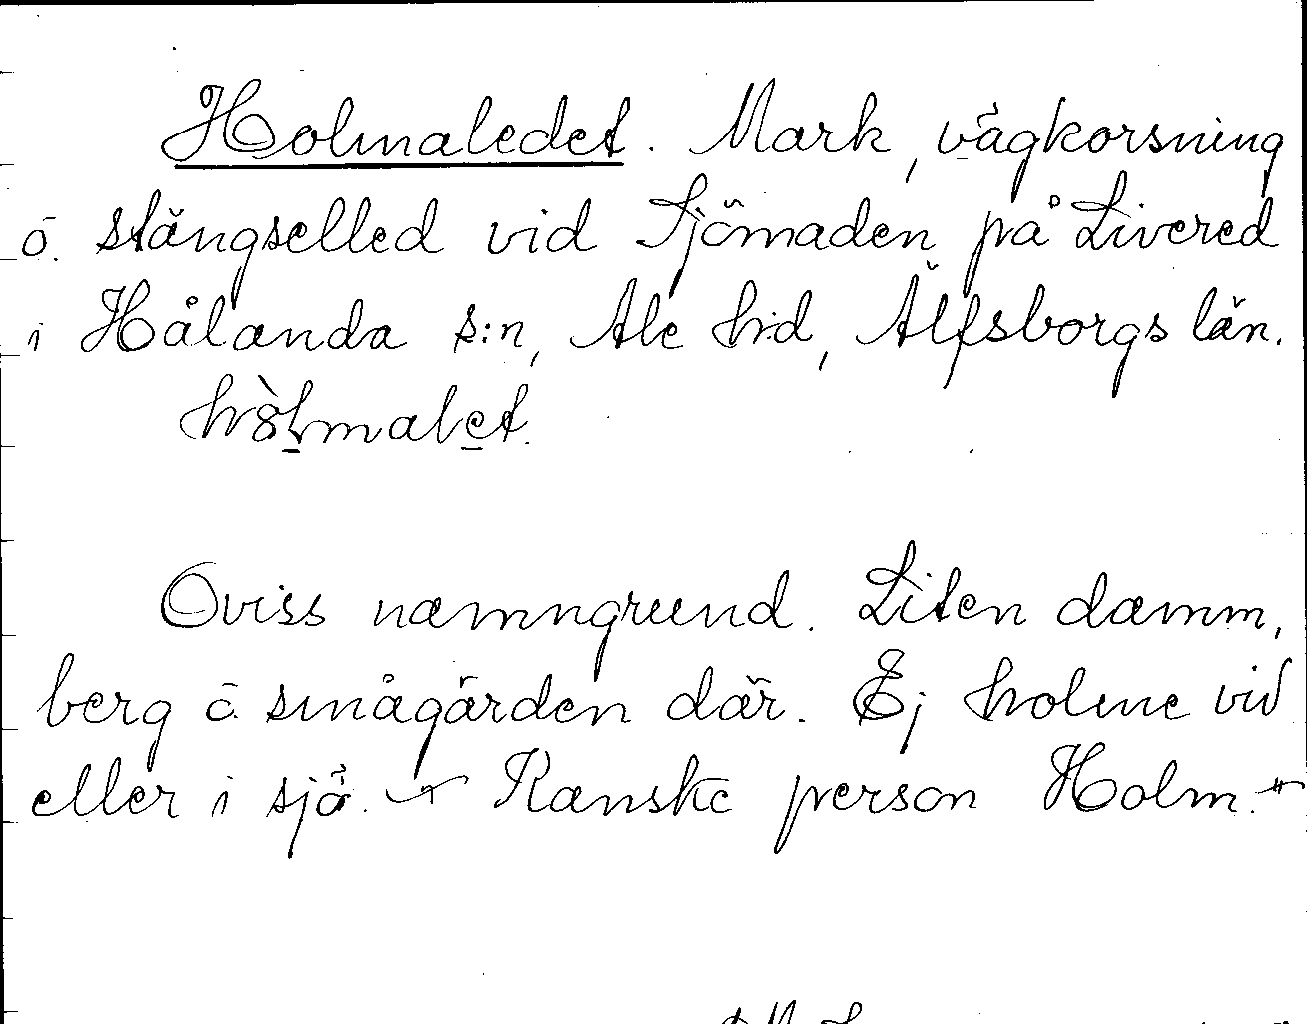 Holmaledet. Mark, vägkorsning
o. stängselled vid Sjömaden på Livered
i Hålanda s:n, Ale h:d, Älfsborgs län.
hòlmalet.
Oviss namngrund. Liten damm,
berg o. smågärden där. Ej holme vid
eller i sjö. Kanske person Holm.